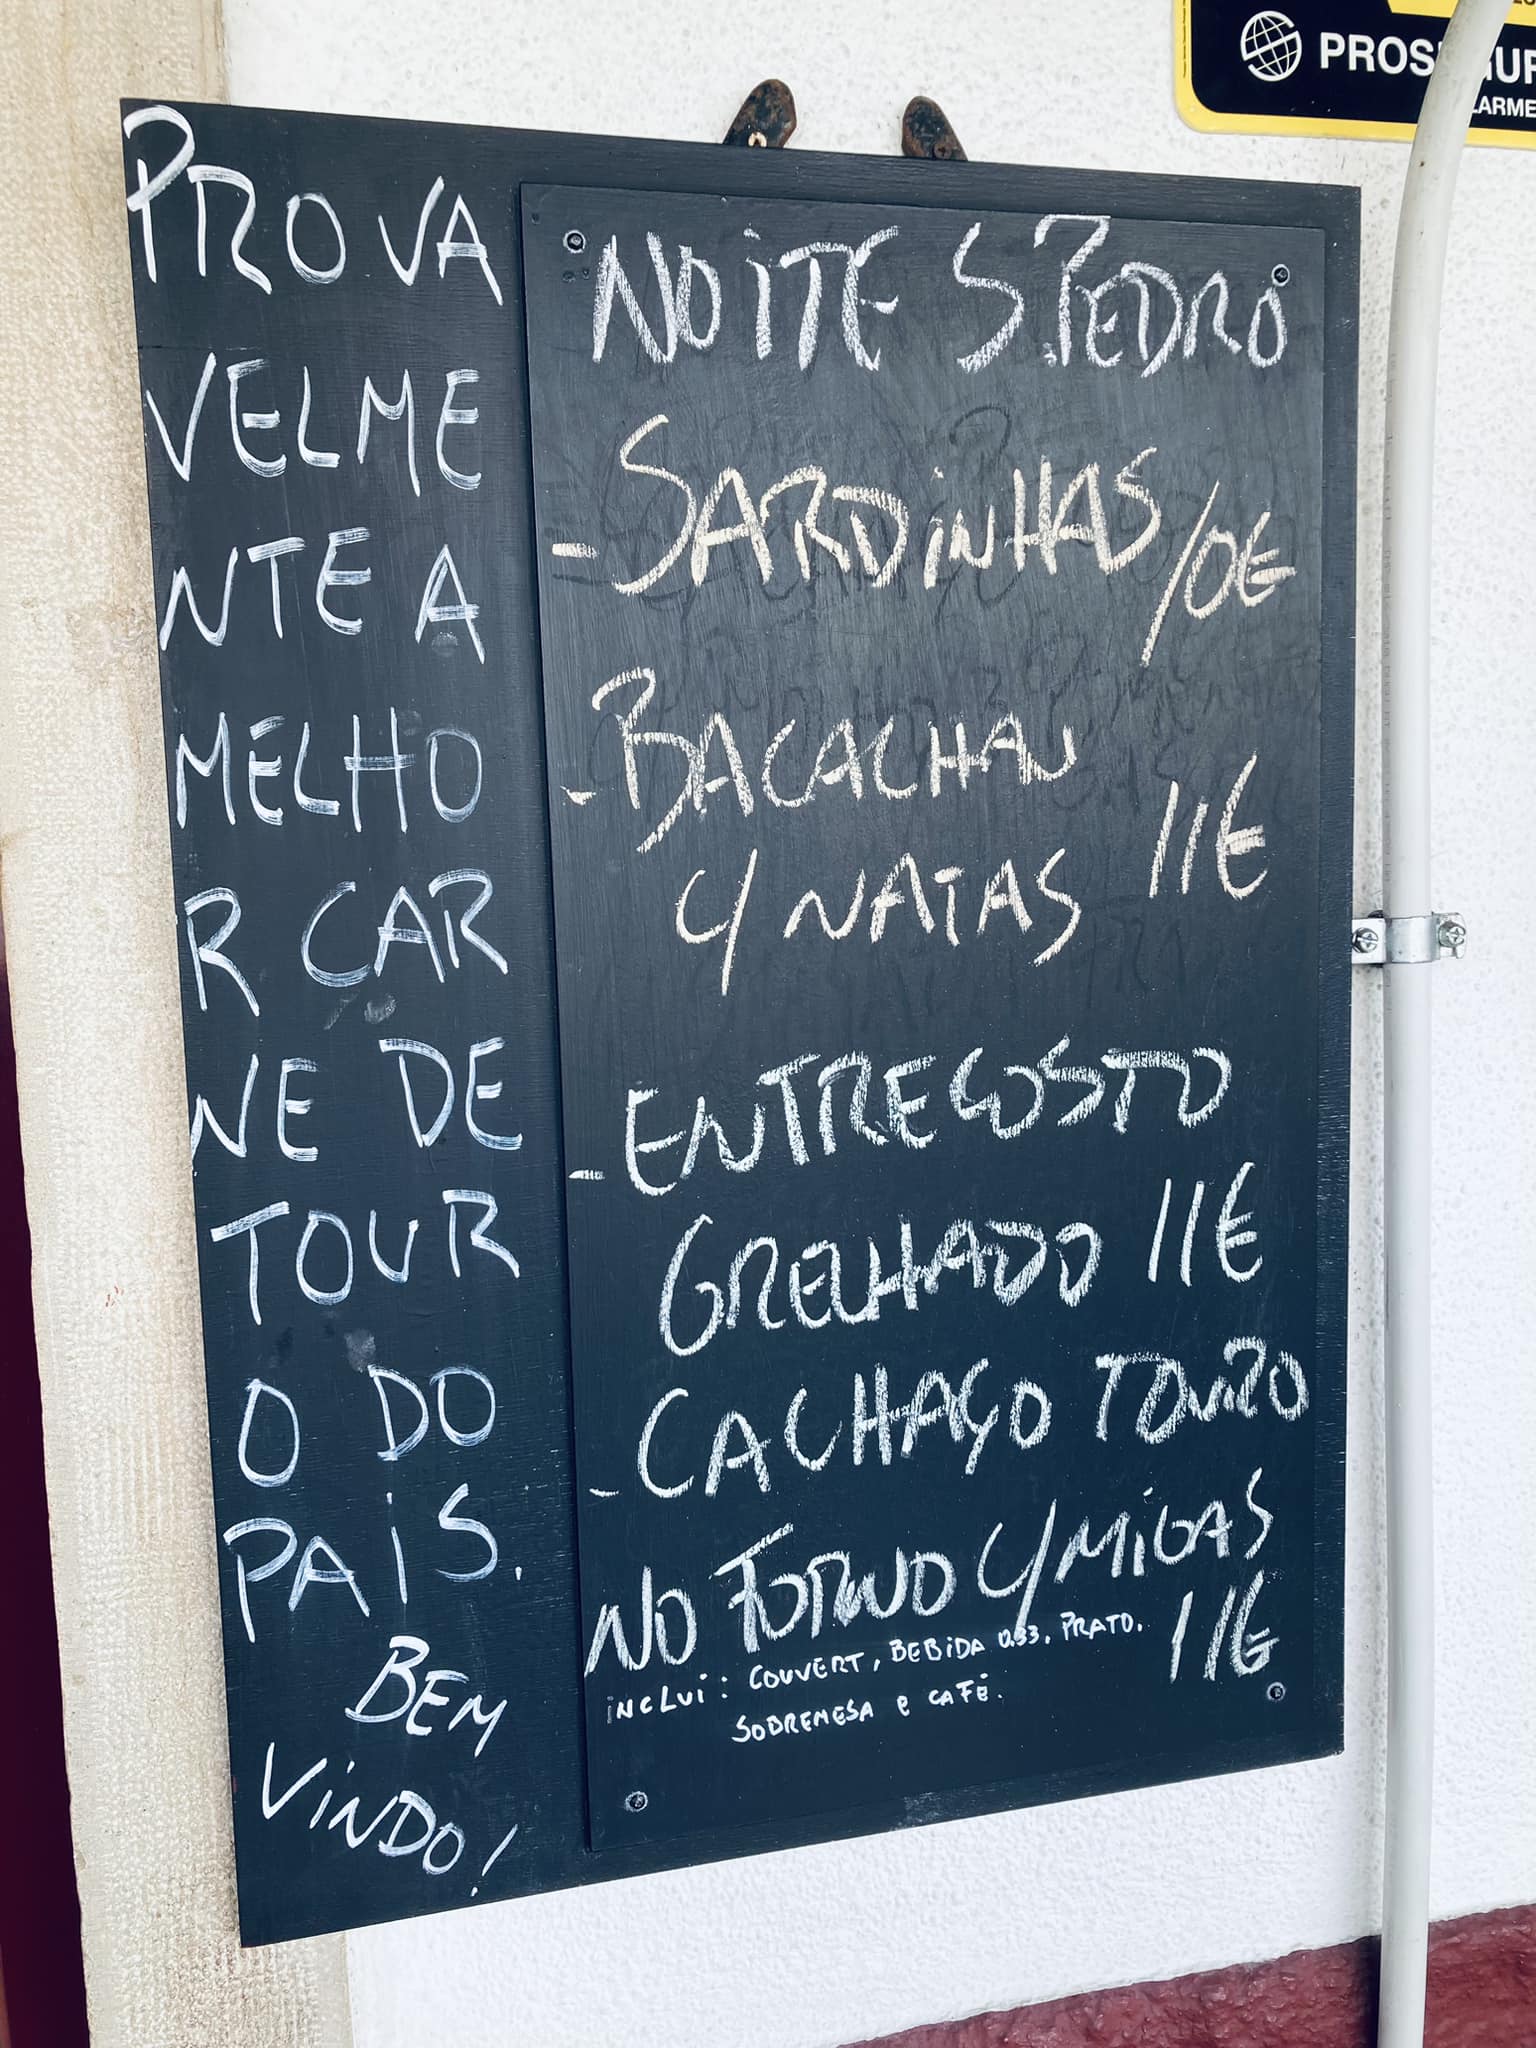 PROVA
VELME
NTE A
MELHO
R CAR
NE DE
TOUR
O DO
PAIS.
BEM
VINDO!
NOITE S.PEDRO
-SARDINHAS 10€
-BACALHAU
C/ NATAS 11€
-ENTRECOSTO
GRELHADO 11€
-CACHAÇO TOURO
NO FORNO C/ MIGAS
11€
INCLUI: COUVERT, BEBIDA 0.33, PRATO.
SOBREMESA E CAFÉ.